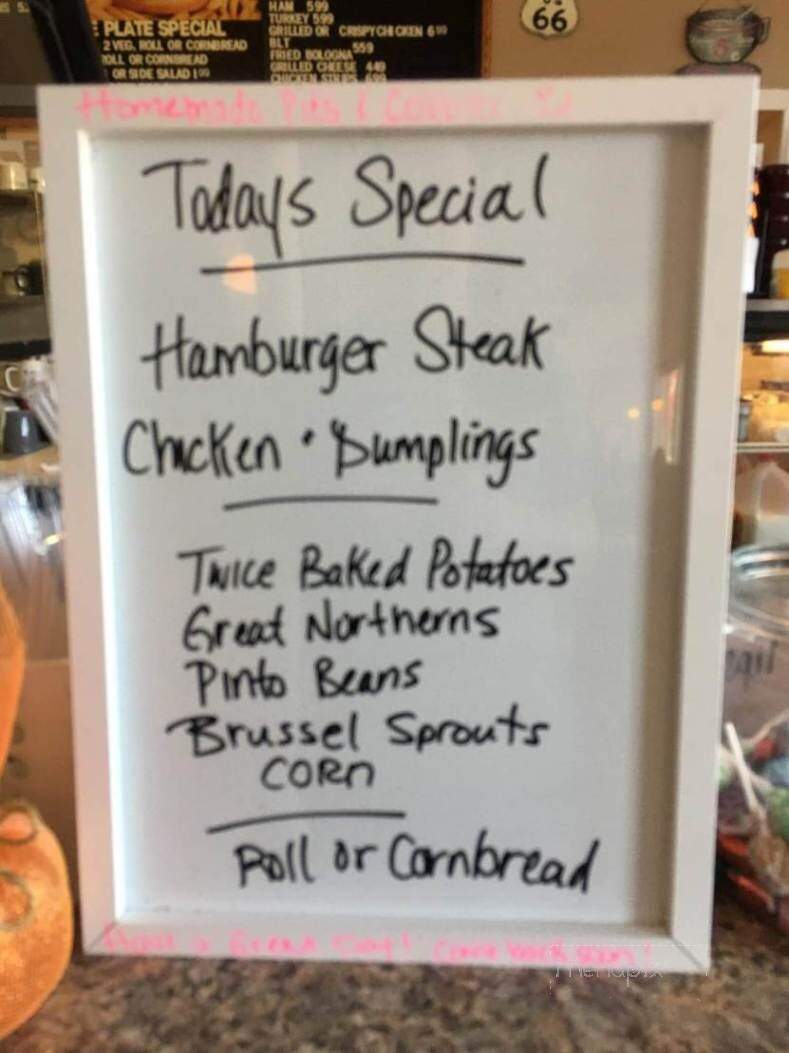 PLATE SPECIAL
2 VEG, ROLL OR CORNBREAD
ROLL OR CORNBREAD
OR SIDE SALAD 1 00
HAM 5 99
TURKEY 5 99
GRILLED OR CRISPY CHICKEN 6
BLT
FRIED BOLOGNA 5 59
GRILLED CHEESE 4 49
CHICKEN STRIPS 6 99
66
Homemade Pies &
Todays Special
Hamburger Steak
Chicken • Dumplings
Twice Baked Potatoes
Great Northerns
Pinto Beans
Brussel Sprouts
CORN
Roll or Cornbread
Have a Great Day! Come back soon!
menupix